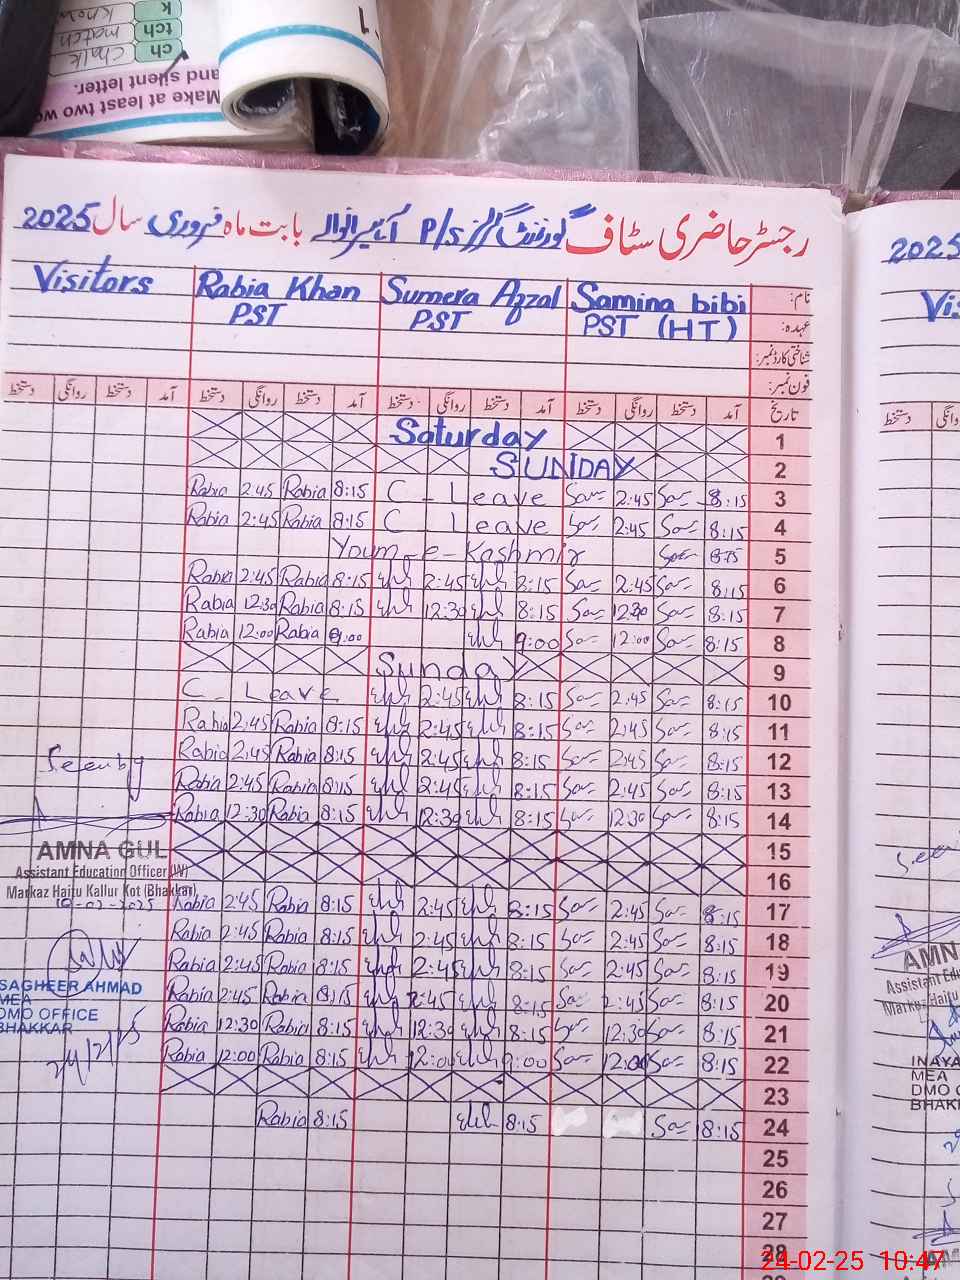 k
know
tch
match
ch
chalk
and silent letter.
Make at least two wo
رجسٹر حاضری سٹاف گورنمنٹ گرلز P/S بابت ماہ فروری سال 2025
2025
Visitors Rabia Khan Sumera Afzal Samina bibi نام:
PST PST PST (HT) عہدہ:
شناختی کارڈ نمبر:
فون نمبر:
دستخط روانگی دستخط آمد دستخط روانگی دستخط آمد دستخط روانگی دستخط آمد دستخط روانگی دستخط آمد تاریخ
دستخط
Saturday 1
SUNDAY 2
Rabia 2:45 Rabia 8:15 C - Leave 2:45 8:15 3
Rabia 2:45 Rabia 8:15 C Leave 2:45 8:15 4
Youm-e-Kashmir 8:15 5
Rabia 2:45 Rabia 8:15 2:45 8:15 2:45 8:15 6
Rabia 12:30 Rabia 8:15 12:30 8:15 12:30 8:15 7
Rabia 12:00 Rabia 9:00 9:00 12:00 8:15 8
Sunday 9
C - Leave 2:45 8:15 2:45 8:15 10
Rabia 2:45 Rabia 8:15 2:45 8:15 2:45 8:15 11
Rabia 2:45 Rabia 8:15 2:45 8:15 2:45 8:15 12
Rabia 2:45 Rabia 8:15 2:45 8:15 2:45 8:15 13
Rabia 12:30 Rabia 8:15 12:30 8:15 12:30 8:15 14
15
16
Rabia 2:45 Rabia 8:15 2:45 8:15 2:45 8:15 17
Rabia 2:45 Rabia 8:15 2:45 8:15 2:45 8:15 18
Rabia 2:45 Rabia 8:15 2:45 8:15 2:45 8:15 19
Rabia 2:45 Rabia 8:15 2:45 8:15 2:45 8:15 20
Rabia 12:30 Rabia 8:15 12:30 8:15 12:30 8:15 21
Rabia 12:00 Rabia 8:15 12:00 9:00 12:00 8:15 22
23
Rabia 8:15 8:15 8:15 24
25
26
27
28
Seen by
AMNA GUL
Assistant Education Officer (W)
Markaz Haitu Kallur Kot (Bhakkar)
10-02-2025
SAGHEER AHMAD
MEA
DMO OFFICE
BHAKKAR
24/2/25
AMN
Assistant Ed
Markaz Haitu
INAYA
MEA
DMO O
BHAK
24-02-25 10:47